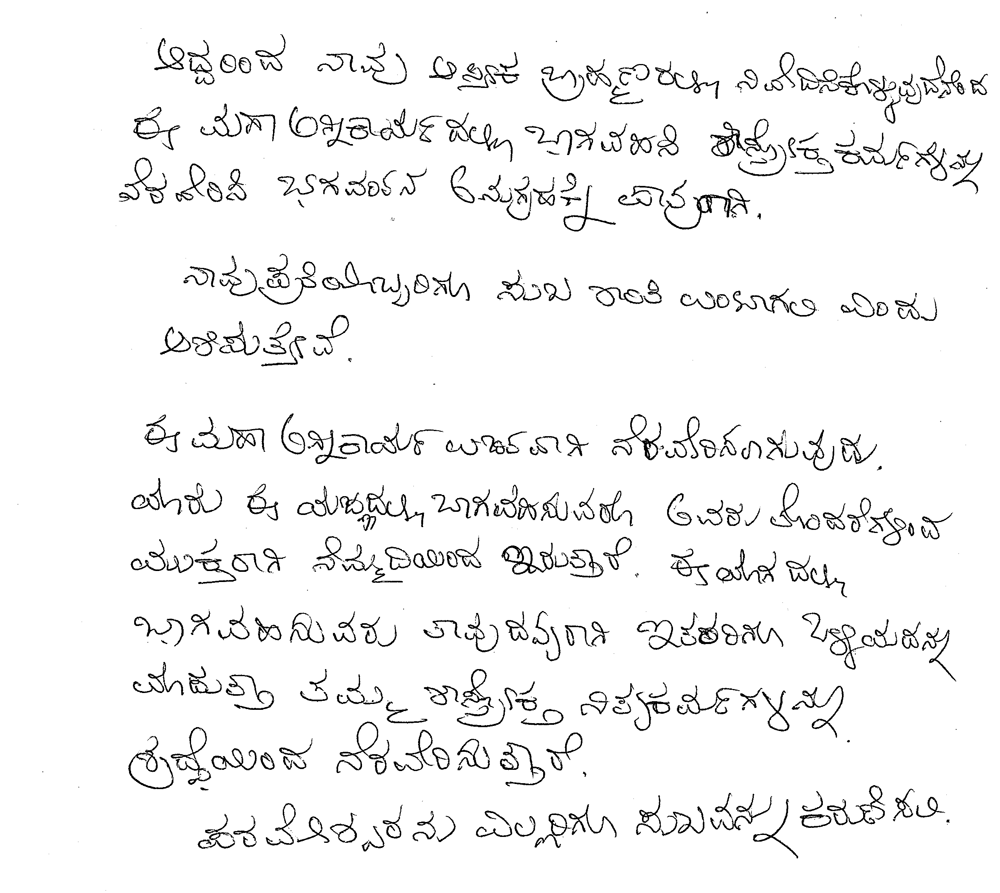 ಆದ್ದರಿಂದ ನಾವು ಆಸ್ತೀಕ ಬ್ರಾಹ್ಮಣರಲ್ಲಿ ನಿವೇದಿಸಿಕೊಳ್ಳುವುದೇನೆಂದರೆ
ಈ ಮಹಾ ಅಗ್ನಿಕಾರ್ಯದಲ್ಲಿ ಭಾಗವಹಿಸಿ ಶಾಸ್ತ್ರೋಕ್ತ ಕರ್ಮಗಳನ್ನು
ನೆರವೇರಿಸಿ ಭಗವಂತನ ಅನುಗ್ರಹಕ್ಕೆ ಪಾತ್ರರಾಗಿ.
ನಾವು ಪ್ರತಿಯೊಬ್ಬರಿಗೂ ಸುಖ ಶಾಂತಿ ಉಂಟಾಗಲಿ ಎಂದು
ಆಶಿಸುತ್ತೇವೆ.
ಈ ಮಹಾ ಅಗ್ನಿಕಾರ್ಯ ಉಚಿತವಾಗಿ ನೆರವೇರಿಸಲಾಗುವುದು.
ಯಾರು ಈ ಯಜ್ಞದಲ್ಲಿ ಭಾಗವಹಿಸುವರೋ ಅವರು ತೊಂದರೆಗಳಿಂದ
ಮುಕ್ತರಾಗಿ ನೆಮ್ಮದಿಯಿಂದ ಇರುತ್ತಾರೆ. ಈ ಯಾಗದಲ್ಲಿ
ಭಾಗವಹಿಸುವರು ತಾವು ದಿವ್ಯರಾಗಿ ಇತರರಿಗೂ ಒಳ್ಳೆಯದನ್ನು
ಮಾಡುತ್ತಾ ತಮ್ಮ ಶಾಸ್ತ್ರೋಕ್ತ ನಿತ್ಯಕರ್ಮಗಳನ್ನು
ಶ್ರದ್ಧೆಯಿಂದ ನೆರವೇರಿಸುತ್ತಾರೆ.
ಪರಮೇಶ್ವರನು ಎಲ್ಲರಿಗೂ ಸುಖವನ್ನು ಕರುಣಿಸಲಿ.